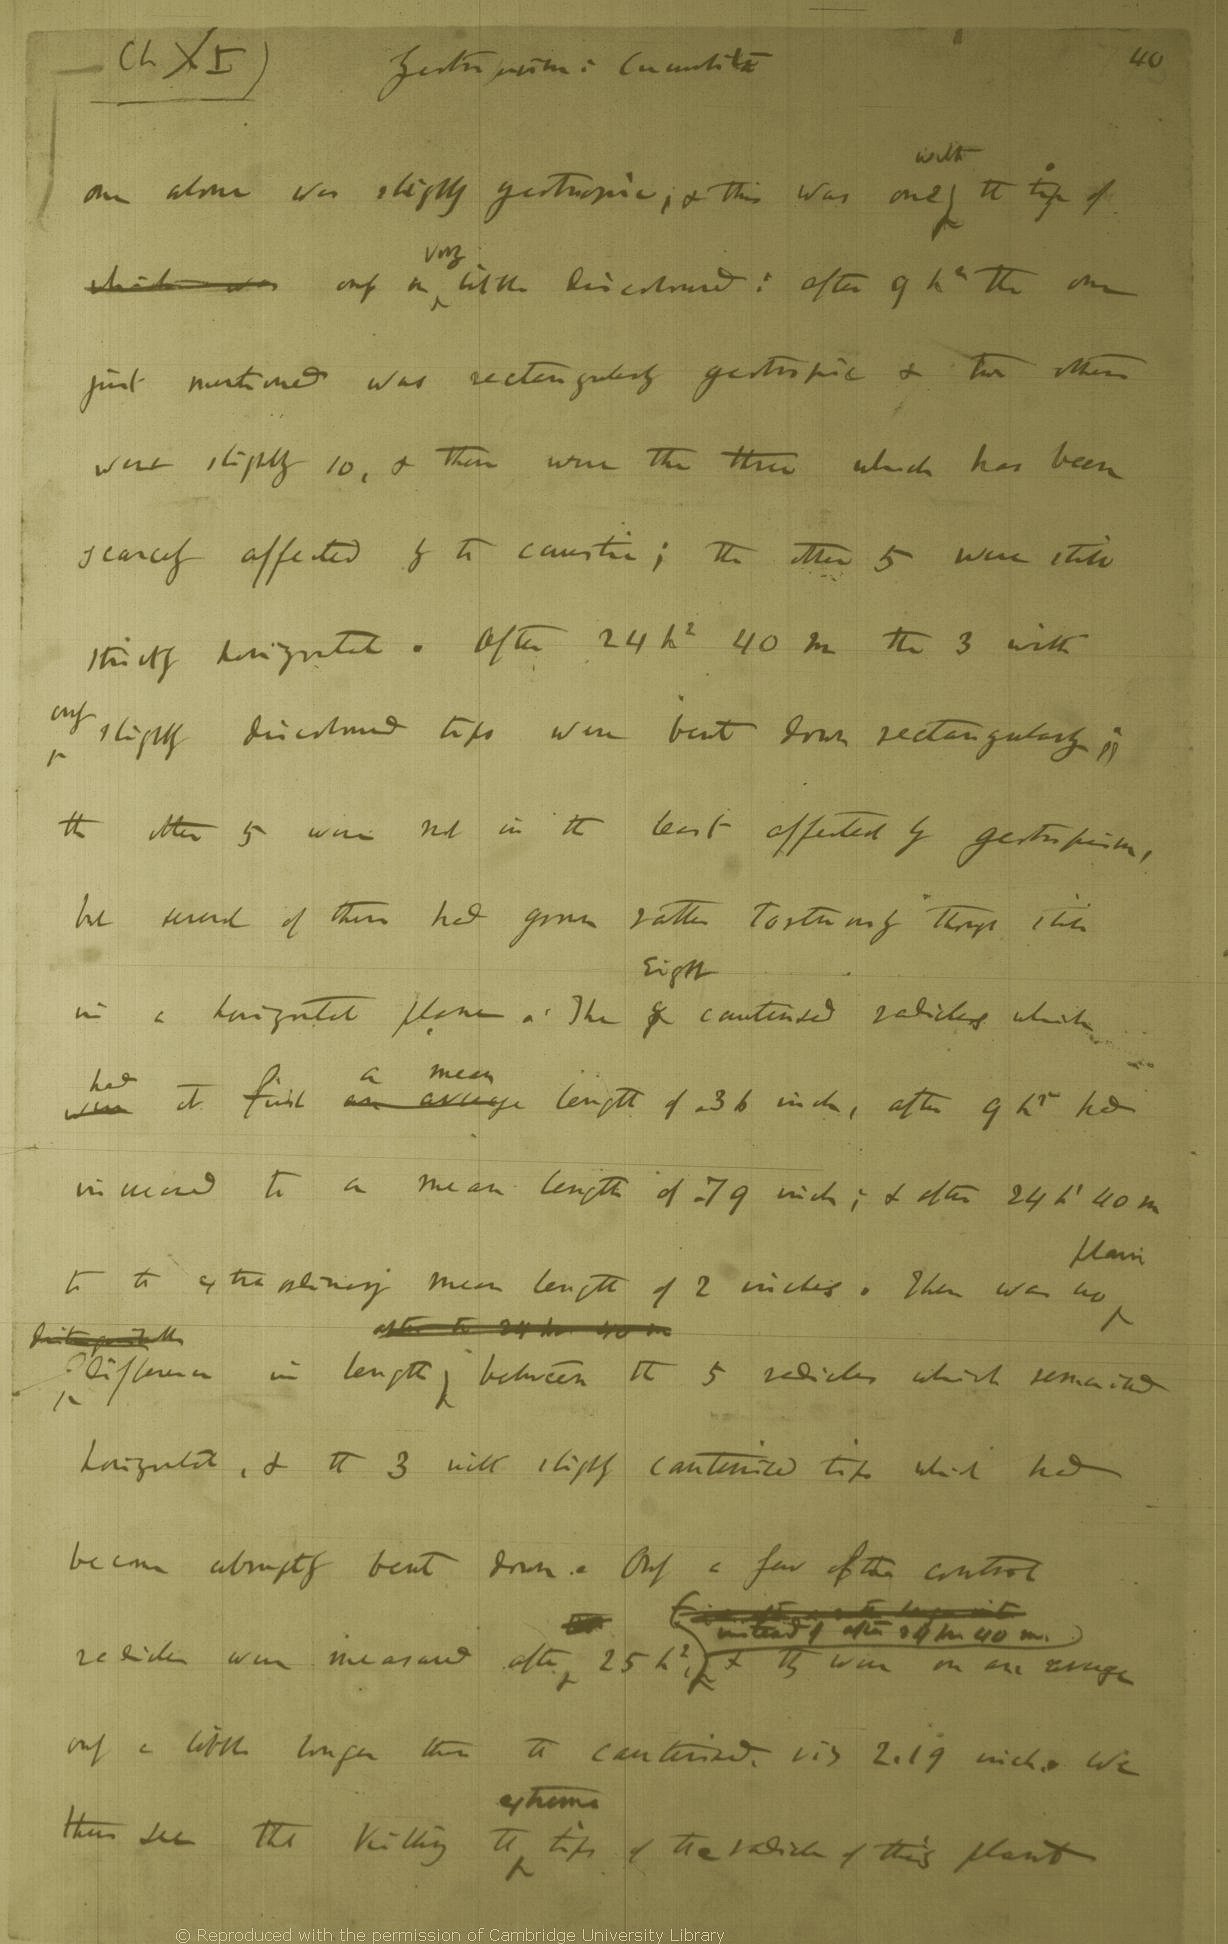 Ch XI)
Geotropism: Cucurbita
40
with
one alone was slightly geotropic; & this was one, the tip of
very
which was only a little discoloured: after 9 hr the one
just mentioned was rectangularly geotropic & two others
were slightly so, & these were the three which has been
scarcely affected by the caustic; the other 5 were still
strictly horizontal. After 24 hr 40 m the 3 with
only slightly discoloured tips were bent down rectangularly;
the other 5 were not in the least affected by geotropism,
but several of them had grown rather tortuously though still
Eight
in a horizontal plane. The 8 cauterised radicles which
had a mean
were at first an average length of .36 inch, after 9 hr had
increased to a mean length of .79 inch; & after 24 hr 40 m
plain
to the extraordinary mean length of 2 inches. There was no
distinguishable after the 24 hr 40 m
difference in length, between the 5 radicles which remained
horizontal, & the 3 with slightly cauterised tips which had
become abruptly bent down. Only a few of the control
instead of after 24 hr 40 m.
radicles were measured after 25 hr, & they were on an average
only a little longer than the cauterised, viz 2.19 inch. We
extreme
thus see the killing the tips of the radicle of this plant
© Reproduced with the permission of Cambridge University Library